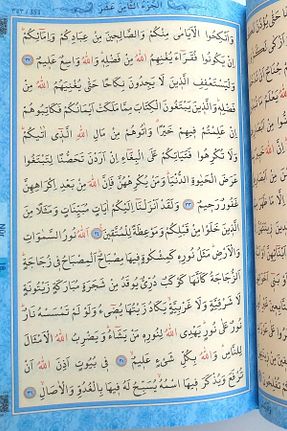 الجزء الثامن عشر
وَاَنْكِحُوا الْاَيَامٰى مِنْكُمْ وَالصَّالِحٖينَ مِنْ عِبَادِكُمْ وَاِمَائِكُمْ
اِنْ يَكُونُوا فُقَرَاءَ يُغْنِهِمُ اللّٰهُ مِنْ فَضْلِهٖ وَاللّٰهُ وَاسِعٌ عَلٖيمٌ ٣٢
وَلْيَسْتَعْفِفِ الَّذٖينَ لَا يَجِدُونَ نِكَاحًا حَتّٰى يُغْنِيَهُمُ اللّٰهُ مِنْ
فَضْلِهٖ وَالَّذٖينَ يَبْتَغُونَ الْكِتَابَ مِمَّا مَلَكَتْ اَيْمَانُكُمْ فَكَاتِبُوهُمْ
اِنْ عَلِمْتُمْ فٖيهِمْ خَيْرًا وَاٰتُوهُمْ مِنْ مَالِ اللّٰهِ الَّذٖى اٰتٰيكُمْ
وَلَا تُكْرِهُوا فَتَيَاتِكُمْ عَلَى الْبِغَاءِ اِنْ اَرَدْنَ تَحَصُّنًا لِتَبْتَغُوا
عَرَضَ الْحَيٰوةِ الدُّنْيَا وَمَنْ يُكْرِهْهُنَّ فَاِنَّ اللّٰهَ مِنْ بَعْدِ اِكْرَاهِهِنَّ
غَفُورٌ رَحٖيمٌ ٣٣ وَلَقَدْ اَنْزَلْنَا اِلَيْكُمْ اٰيَاتٍ مُبَيِّنَاتٍ وَمَثَلًا مِنَ
الَّذٖينَ خَلَوْا مِنْ قَبْلِكُمْ وَمَوْعِظَةً لِلْمُتَّقٖينَ ٣٤ اَللّٰهُ نُورُ السَّمٰوَاتِ
وَالْاَرْضِ مَثَلُ نُورِهٖ كَمِشْكٰوةٍ فٖيهَا مِصْبَاحٌ اَلْمِصْبَاحُ فٖى زُجَاجَةٍ
اَلزُّجَاجَةُ كَاَنَّهَا كَوْكَبٌ دُرِّىٌّ يُوقَدُ مِنْ شَجَرَةٍ مُبَارَكَةٍ زَيْتُونَةٍ
لَا شَرْقِيَّةٍ وَلَا غَرْبِيَّةٍ يَكَادُ زَيْتُهَا يُضٖىءُ وَلَوْ لَمْ تَمْسَسْهُ نَارٌ
نُورٌ عَلٰى نُورٍ يَهْدِى اللّٰهُ لِنُورِهٖ مَنْ يَشَاءُ وَيَضْرِبُ اللّٰهُ الْاَمْثَالَ
لِلنَّاسِ وَاللّٰهُ بِكُلِّ شَىْءٍ عَلٖيمٌ ٣٥ فٖى بُيُوتٍ اَذِنَ اللّٰهُ اَنْ
تُرْفَعَ وَيُذْكَرَ فٖيهَا اسْمُهُ يُسَبِّحُ لَهُ فٖيهَا بِالْغُدُوِّ وَالْاٰصَالِ ٣٦